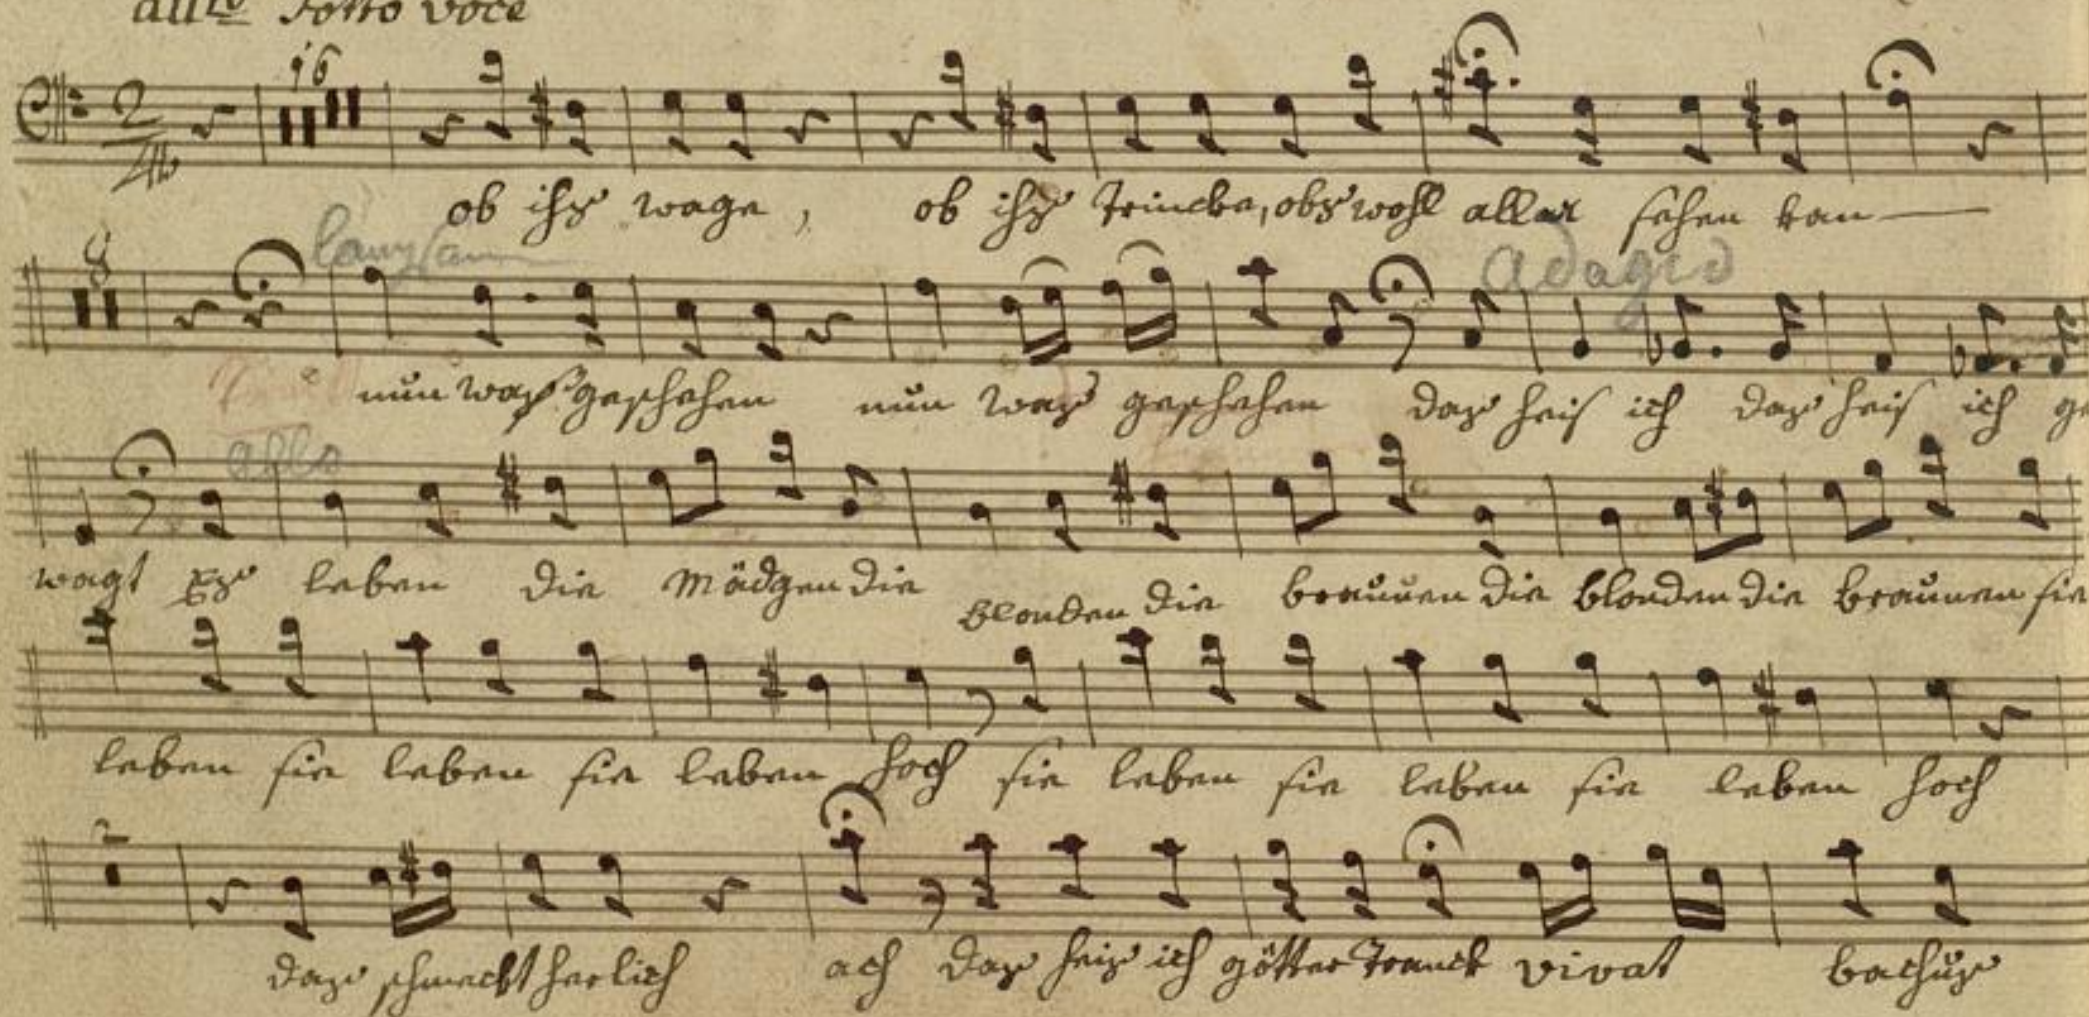 all:ro Sotto voce
16
2/4
ob ihs wage, ob ihs Trincke, obs wohl allar sehen kan
8 langsam Adagio
nun was geschehen nun was geschehen das heis ich das heis ich ge
allo
wagt Es leben die Mädgen die blonden die braunen die blonden die braunen sie
leben sie leben sie leben hoch sie leben sie leben sie leben hoch
2
das schmeckt herlich ach das heis ich götter Tranck vivat bachus